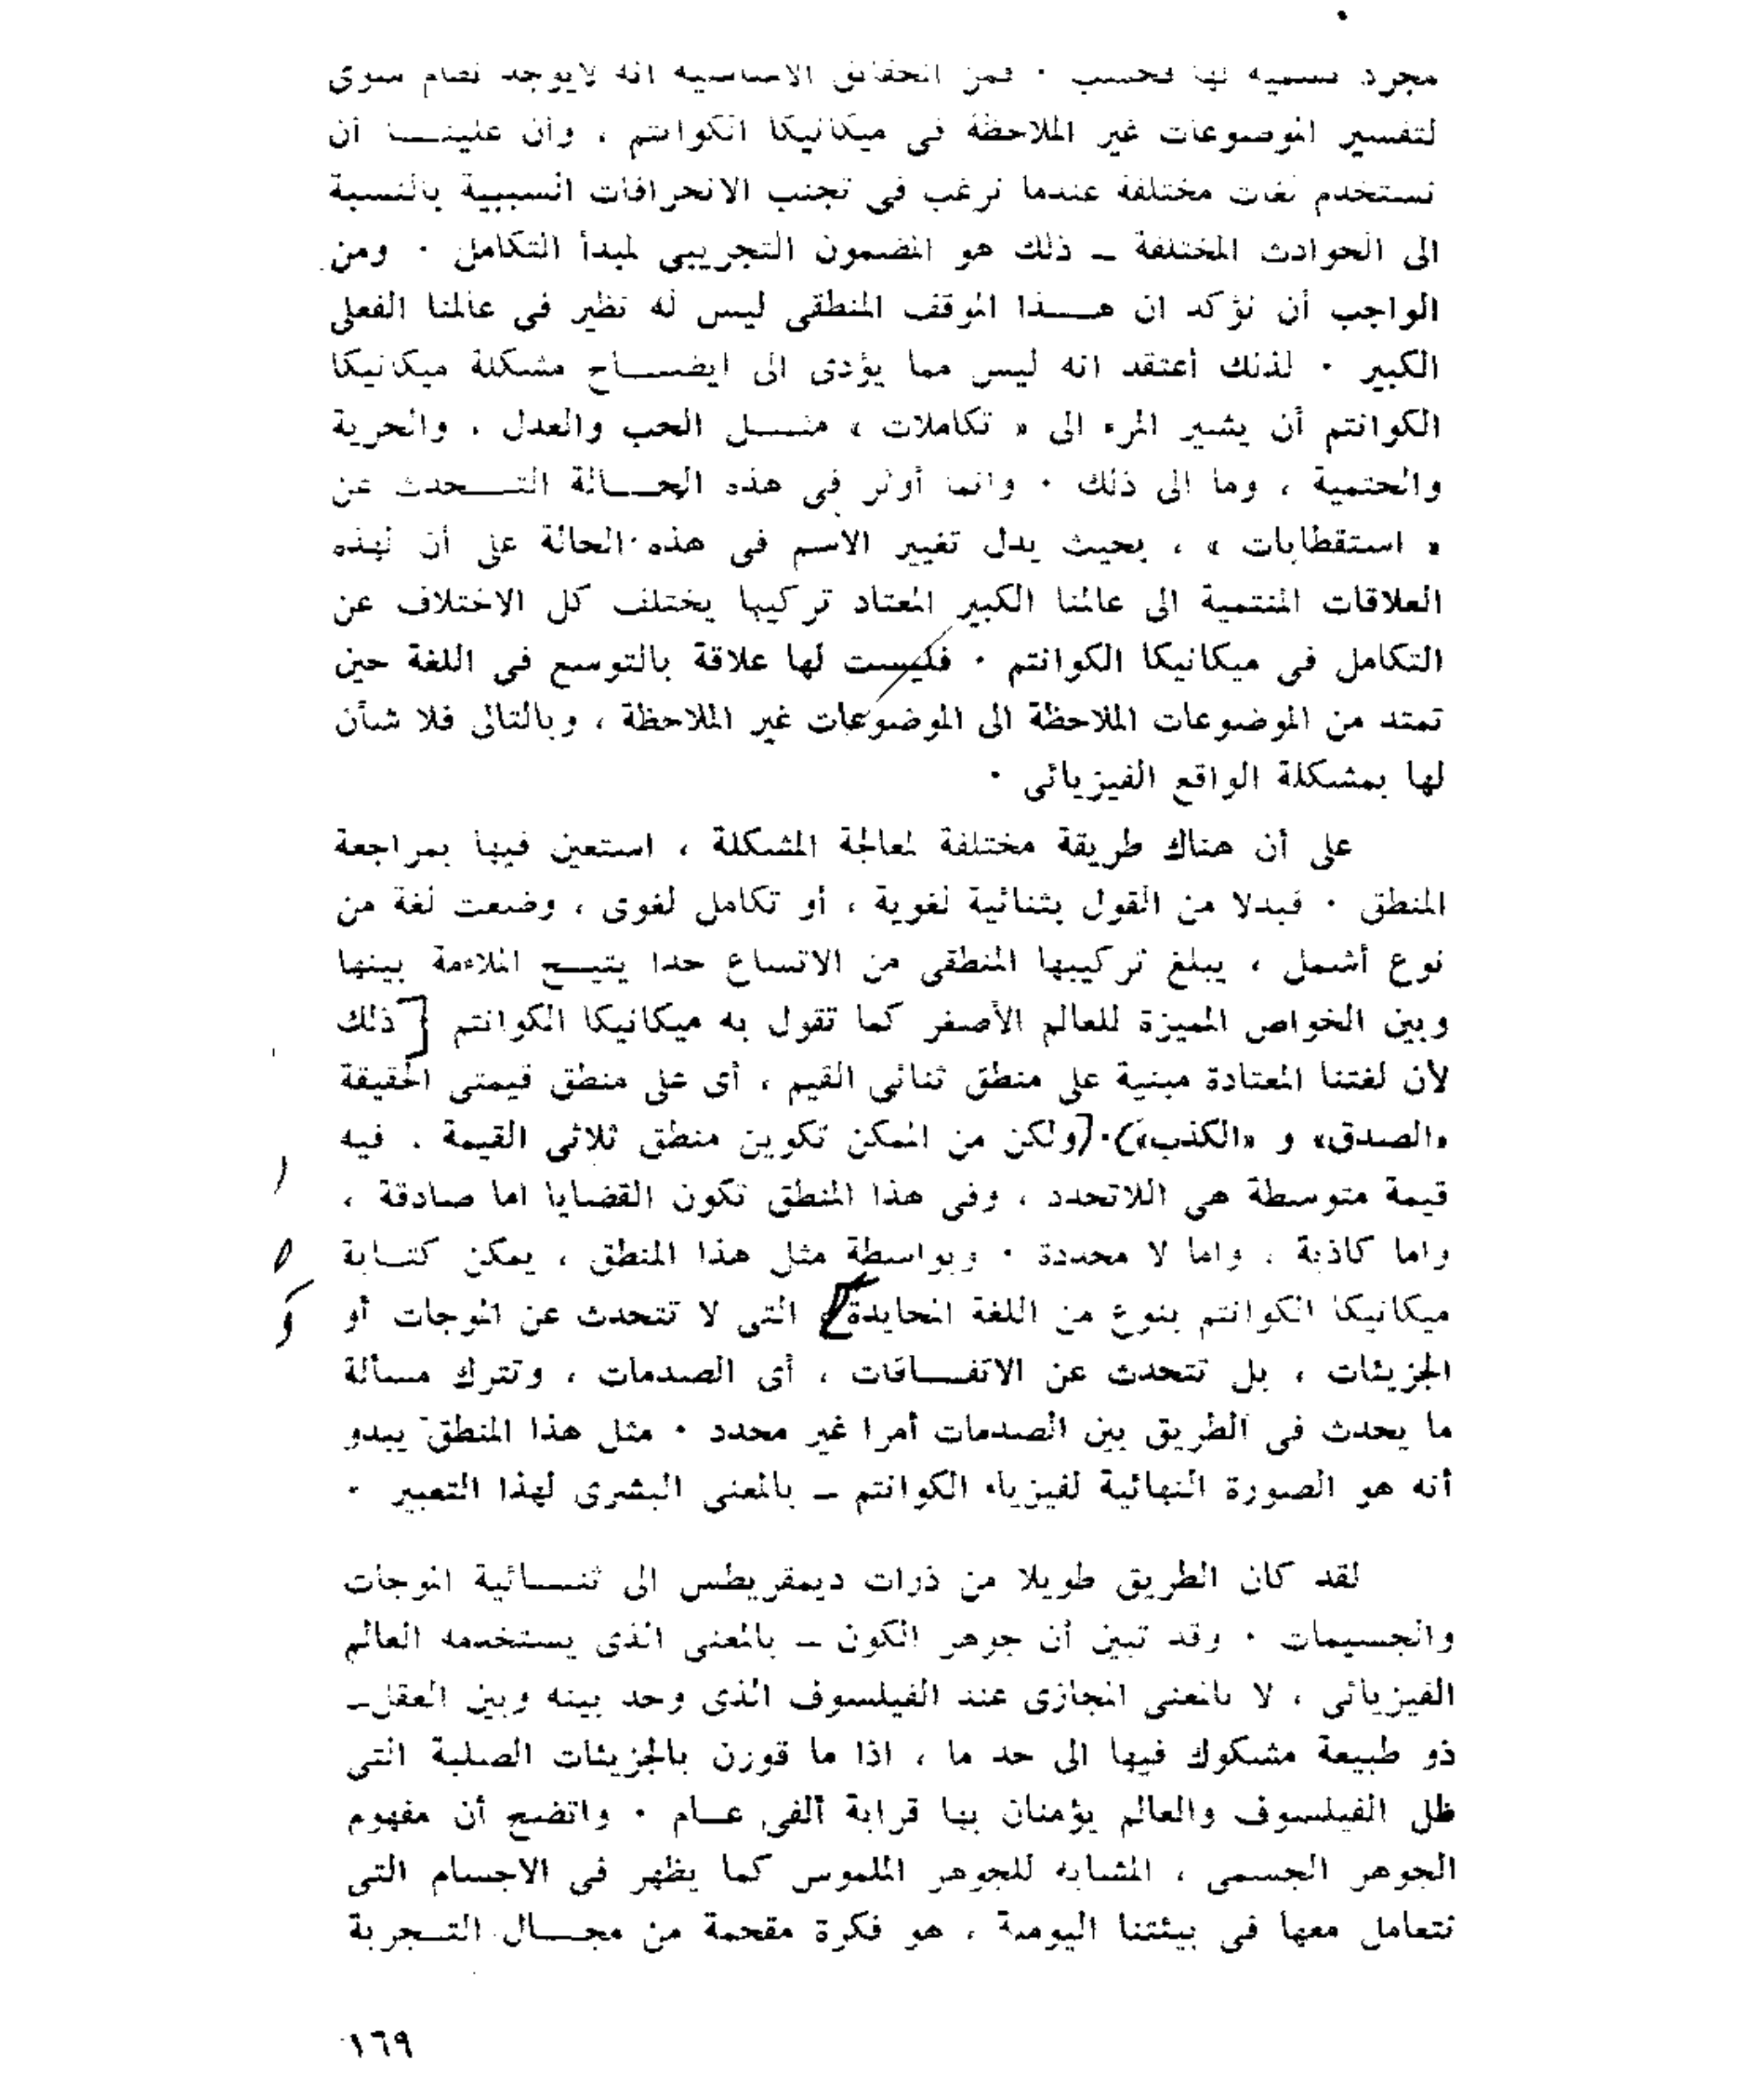 مجرد تسمية لها فحسب ٠ فمن الحقائق الاساسية انه لايوجد نظام سوى
لتفسير الموضوعات غير الملاحظة فى ميكانيكا الكوانتم ، وأن علينـــا أن
نستخدم لغات مختلفة عندما نرغب فى تجنب الانحرافات السببية بالنسبة
الى الحوادث المختلفة ــ ذلك هو المضمون التجريبى لمبدأ التكامل ٠ ومن
الواجب أن نؤكد ان هــــذا الموقف المنطقى ليس له نظير فى عالمنا الفعلى
الكبير ٠ لذلك أعتقد انه ليس مما يؤدى الى ايضـــاح مشكلة ميكانيكا
الكوانتم أن يشير المرء الى « تكاملات » مثــــل الحب والعدل ، والحرية
والحتمية ، وما الى ذلك ٠ وانما أوثر فى هذه الحـــالة التـــحدث عن
« استقطابات » ، بحيث يدل تغيير الاسم فى هذه الحالة على أن لهذه
العلاقات المنتمية الى عالمنا الكبير المعتاد تركيبا يختلف كل الاختلاف عن
التكامل فى ميكانيكا الكوانتم ٠ فليست لها علاقة بالتوسع فى اللغة حين
تمتد من الموضوعات الملاحظة الى الموضوعات غير الملاحظة ، وبالتالى فلا شأن
لها بمشكلة الواقع الفيزيائى ٠
على أن هناك طريقة مختلفة لمعالجة المشكلة ، استعين فيها بمراجعة
المنطق ٠ فبدلا من القول بثنائية لغوية ، أو تكامل لغوى ، وضعت لغة من
نوع أشمل ، يبلغ تركيبها المنطقى من الاتساع حدا يتيـــح الملاءمة بينها
وبين الخواص المميزة للعالم الأصغر كما تقول به ميكانيكا الكوانتم [ ذلك
لأن لغتنا المعتادة مبنية على منطق ثنائى القيم ، أى على منطق قيمتى الحقيقة
«الصدق» و «الكذب») ٠ [ولكن من الممكن تكوين منطق ثلاثى القيمة ، فيه
قيمة متوسطة هى اللاتحدد ، وفى هذا المنطق تكون القضايا اما صادقة ،
واما كاذبة ، واما لا محددة ٠ وبواسطة مثل هذا المنطق ، يمكن كتــابة
ميكانيكا الكوانتم بنوع من اللغة المحايدة] التى لا تتحدث عن الموجات أو
الجزيئات ، بل تتحدث عن الاتفـــاقات ، أى الصدمات ، وتترك مسألة
ما يحدث فى الطريق بين الصدمات أمرا غير محدد ٠ مثل هذا المنطق يبدو
أنه هو الصورة النهائية لفيزياء الكوانتم ــ بالمعنى البشرى لهذا التعبير ٠
لقد كان الطريق طويلا من ذرات ديمقريطس الى ثنـــائية الموجات
والجسيمات ٠ وقد تبين أن جوهر الكون ــ بالمعنى الذى يستخدمه العالم
الفيزيائى ، لا بالمعنى المجازى عند الفيلسوف الذى وحد بينه وبين العقل ــ
ذو طبيعة مشكوك فيها الى حد ما ، اذا ما قورن بالجزيئات الصلبة التى
ظل الفيلسوف والعالم يؤمنان بها قرابة ألفى عــام ٠ واتضح أن مفهوم
الجوهر الجسمى ، المشابه للجوهر الملموس كما يظهر فى الاجسام التى
نتعامل معها فى بيئتنا اليومية ، هو فكرة مقحمة من مجــال التــجربة
١٦٩